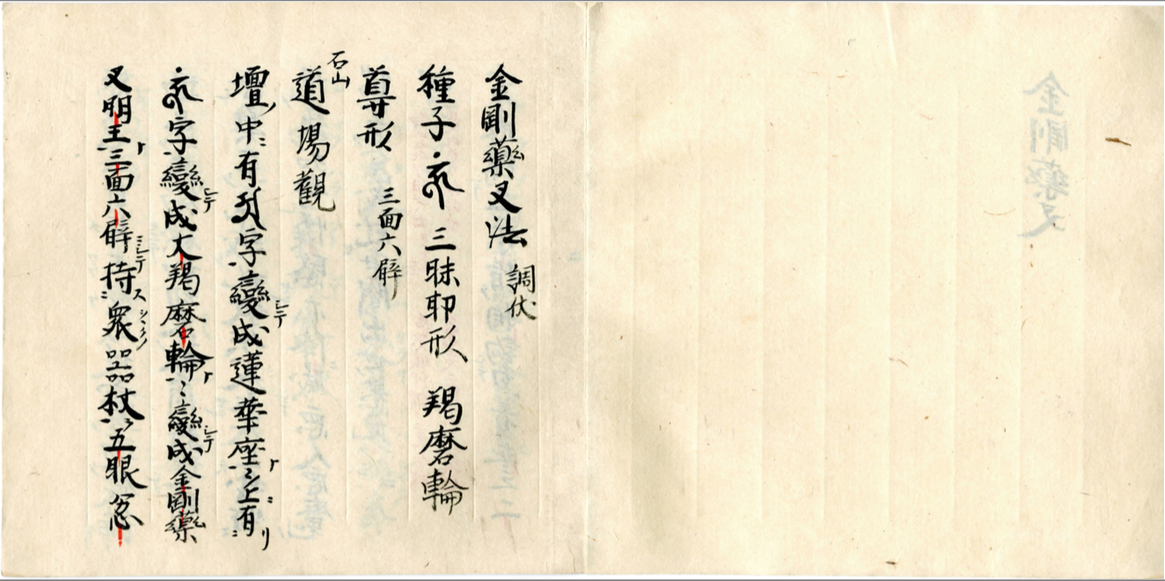 金剛藥叉法 調伏
種子 三昧耶形 羯磨輪
尊形 三面六臂
石山
道場觀
壇中有字變成蓮華座々上有
字變成大羯磨輪々變成金剛藥
叉明王三面六臂持衆器杖五眼忿